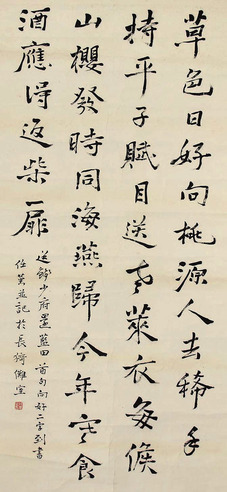 草色日好向桃源人去稀手
持平子賦目送老萊衣每候
山櫻發時同海燕歸今年寒食
酒應得返柴扉
送錢少府還藍田首句向好二字到書
並記於長